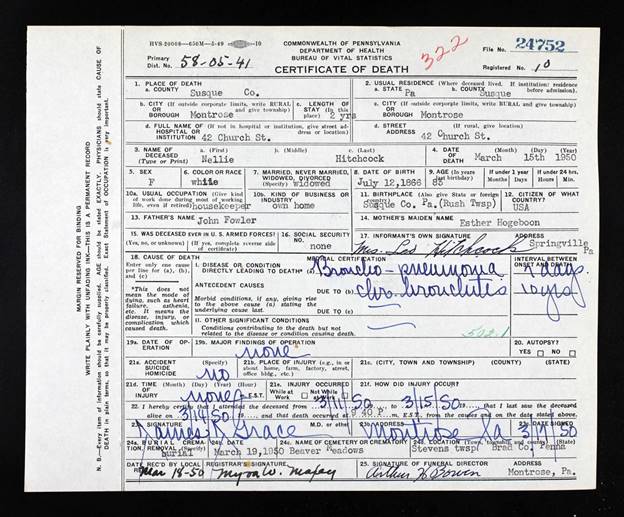 HVS-20009—650M—5-49 10
COMMONWEALTH OF PENNSYLVANIA
DEPARTMENT OF HEALTH
BUREAU OF VITAL STATISTICS
CERTIFICATE OF DEATH
322
File No. 24752
Registered No. 10
Primary
Dist. No. 58-05-41
1. PLACE OF DEATH
a. COUNTY Susque Co.
2. USUAL RESIDENCE (Where deceased lived. If institution: residence before admission).
a. STATE Pa b. COUNTY Susque
b. CITY (If outside corporate limits, write RURAL
OR and give township)
BOROUGH Montrose
c. LENGTH OF
STAY (in this place)
2 yrs
c. CITY (If outside corporate limits, write RURAL and give township)
OR
BOROUGH Montrose
d. FULL NAME OF (If not in hospital or institution, give street address or location)
HOSPITAL OR
INSTITUTION 42 Church St.
d. STREET (If rural, give location)
ADDRESS 42 Church St.
3. NAME OF a. (First) b. (Middle) c. (Last)
DECEASED
(Type or Print) Nellie Hitchcock
4. DATE (Month) (Day) (Year)
OF
DEATH March 15th 1950
5. SEX
F
6. COLOR OR RACE
white
7. MARRIED, NEVER MARRIED,
WIDOWED, DIVORCED
(Specify) widowed
8. DATE OF BIRTH
July 12,1866
9. AGE (In years last birthday)
83
If under 1 year
Months Days
If under 24 hrs.
Hours Min.
10a. USUAL OCCUPATION (Give kind
of work done during most of working
life, even if retired) housekeeper
10b. KIND OF BUSINESS OR
INDUSTRY
own home
11. BIRTHPLACE (Also give State or foreign country)
Susque Co. Pa.(Rush Twsp)
12. CITIZEN OF WHAT
COUNTRY?
USA
13. FATHER'S NAME
John Fowler
14. MOTHER'S MAIDEN NAME
Esther Hogeboon
15. WAS DECEASED EVER IN U.S. ARMED FORCES?
(Yes, no, or unknown) (If yes, complete reverse side of certificate)
16. SOCIAL SECURITY
NO.
none
17. INFORMANT'S OWN SIGNATURE
Mrs. Leo Hitchcock Springville
Pa
18. CAUSE OF DEATH
Enter only one cause
per line for (a), (b),
and (c)
MEDICAL CERTIFICATION
INTERVAL BETWEEN
ONSET AND DEATH
I. DISEASE OR CONDITION
DIRECTLY LEADING TO DEATH* (a) Broncho-pneumonia 4 days
*This does not
mean the mode of
dying, such as heart
failure, asthenia,
etc. It means the
disease, injury, or
complication which
caused death.
ANTECEDENT CAUSES
Morbid conditions, if any, giving rise
to the above cause (a) stating the
underlying cause last.
DUE TO (b) chr. bronchitis 10 yrs
DUE TO (c)
II. OTHER SIGNIFICANT CONDITIONS
Conditions contributing to the death but not
related to the disease or condition causing death.
502.1
19a. DATE OF OPERATION
19b. MAJOR FINDINGS OF OPERATION
none
20. AUTOPSY?
YES NO
21a. ACCIDENT (Specify)
SUICIDE
HOMICIDE no
21b. PLACE OF INJURY (e.g., in or about
home, farm, factory, street, office bldg., etc.)
21c. (CITY, TOWN AND TOWNSHIP) (COUNTY) (STATE)
21d. TIME (Month) (Day) (Year) (Hour)
OF
INJURY none
21e. INJURY OCCURRED
While at Work Not While at Work
21f. HOW DID INJURY OCCUR?
22. I hereby certify that I attended the deceased from 3/11/50 to 3/15/50, that I last saw the deceased
alive on 3/14/50, and that death occurred at 9:40 P. m. E.S.T., from the causes and on the date stated above.
23. SIGNATURE James J. Grace M.D. or other
23b. ADDRESS Montrose Pa
24a. BURIAL, CREMATION, REMOVAL (Specify)
burial
24b. DATE
March 19,1950
24c. NAME OF CEMETERY OR CREMATORY
Beaver Meadows
24d. LOCATION (Town, township, county) (State)
Stevens twsp; Brad Co. Penna
DATE REC'D BY LOCAL REG.
Mar 18-50
REGISTRAR'S SIGNATURE
Myra W.
25. SIGNATURE OF FUNERAL DIRECTOR
Arthur H Bowen
Montrose, Pa.
MARGIN RESERVED FOR BINDING
WRITE PLAINLY WITH UNFADING INK—THIS IS A PERMANENT RECORD
N. B.—Every item of information should be carefully supplied. AGE should be stated EXACTLY. PHYSICIANS should state CAUSE OF
DEATH in plain terms, so that it may be properly classified. Exact Statement of OCCUPATION is very important.